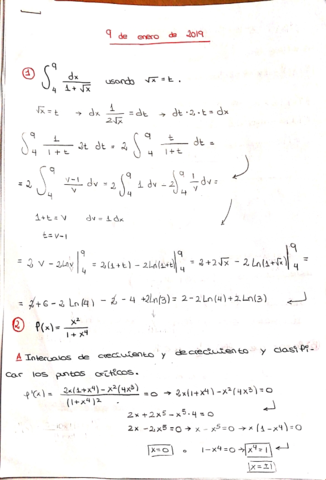 9 de enero de 2019
① ∫₄⁹ dx/(1+√x) usando √x = t.
√x = t → dx 1/(2√x) = dt → dt·2·t = dx
∫₄⁹ 1/(1+t) 2t dt = 2 ∫₄⁹ t/(1+t) dt =
= 2 ∫₄⁹ (v-1)/v dv = 2 ∫₄⁹ 1 dv - 2 ∫₄⁹ 1/v dv =
1+t = v dv = 1dx
t = v-1
= 2v - 2lnv |₄⁹ = 2(1+t) - 2ln(1+t) |₄⁹ = 2+2√x - 2Ln(1+√x) |₄⁹ =
= 2+6-2Ln(4) - 2 - 4 + 2ln(3) = 2-2Ln(4)+2Ln(3)
② f(x) = x²/(1+x⁴)
A Intervalos de crecimiento y decrecimiento y clasifi-
car los puntos críticos.
f'(x) = (2x(1+x⁴) - x²(4x³))/(1+x⁴)² = 0 → 2x(1+x⁴) - x²(4x³) = 0
2x+2x⁵-x⁵·4 = 0
2x-2x⁵ = 0 → x-x⁵ = 0 → x(1-x⁴) = 0
x=0 o 1-x⁴=0 → x⁴=1
x=±1